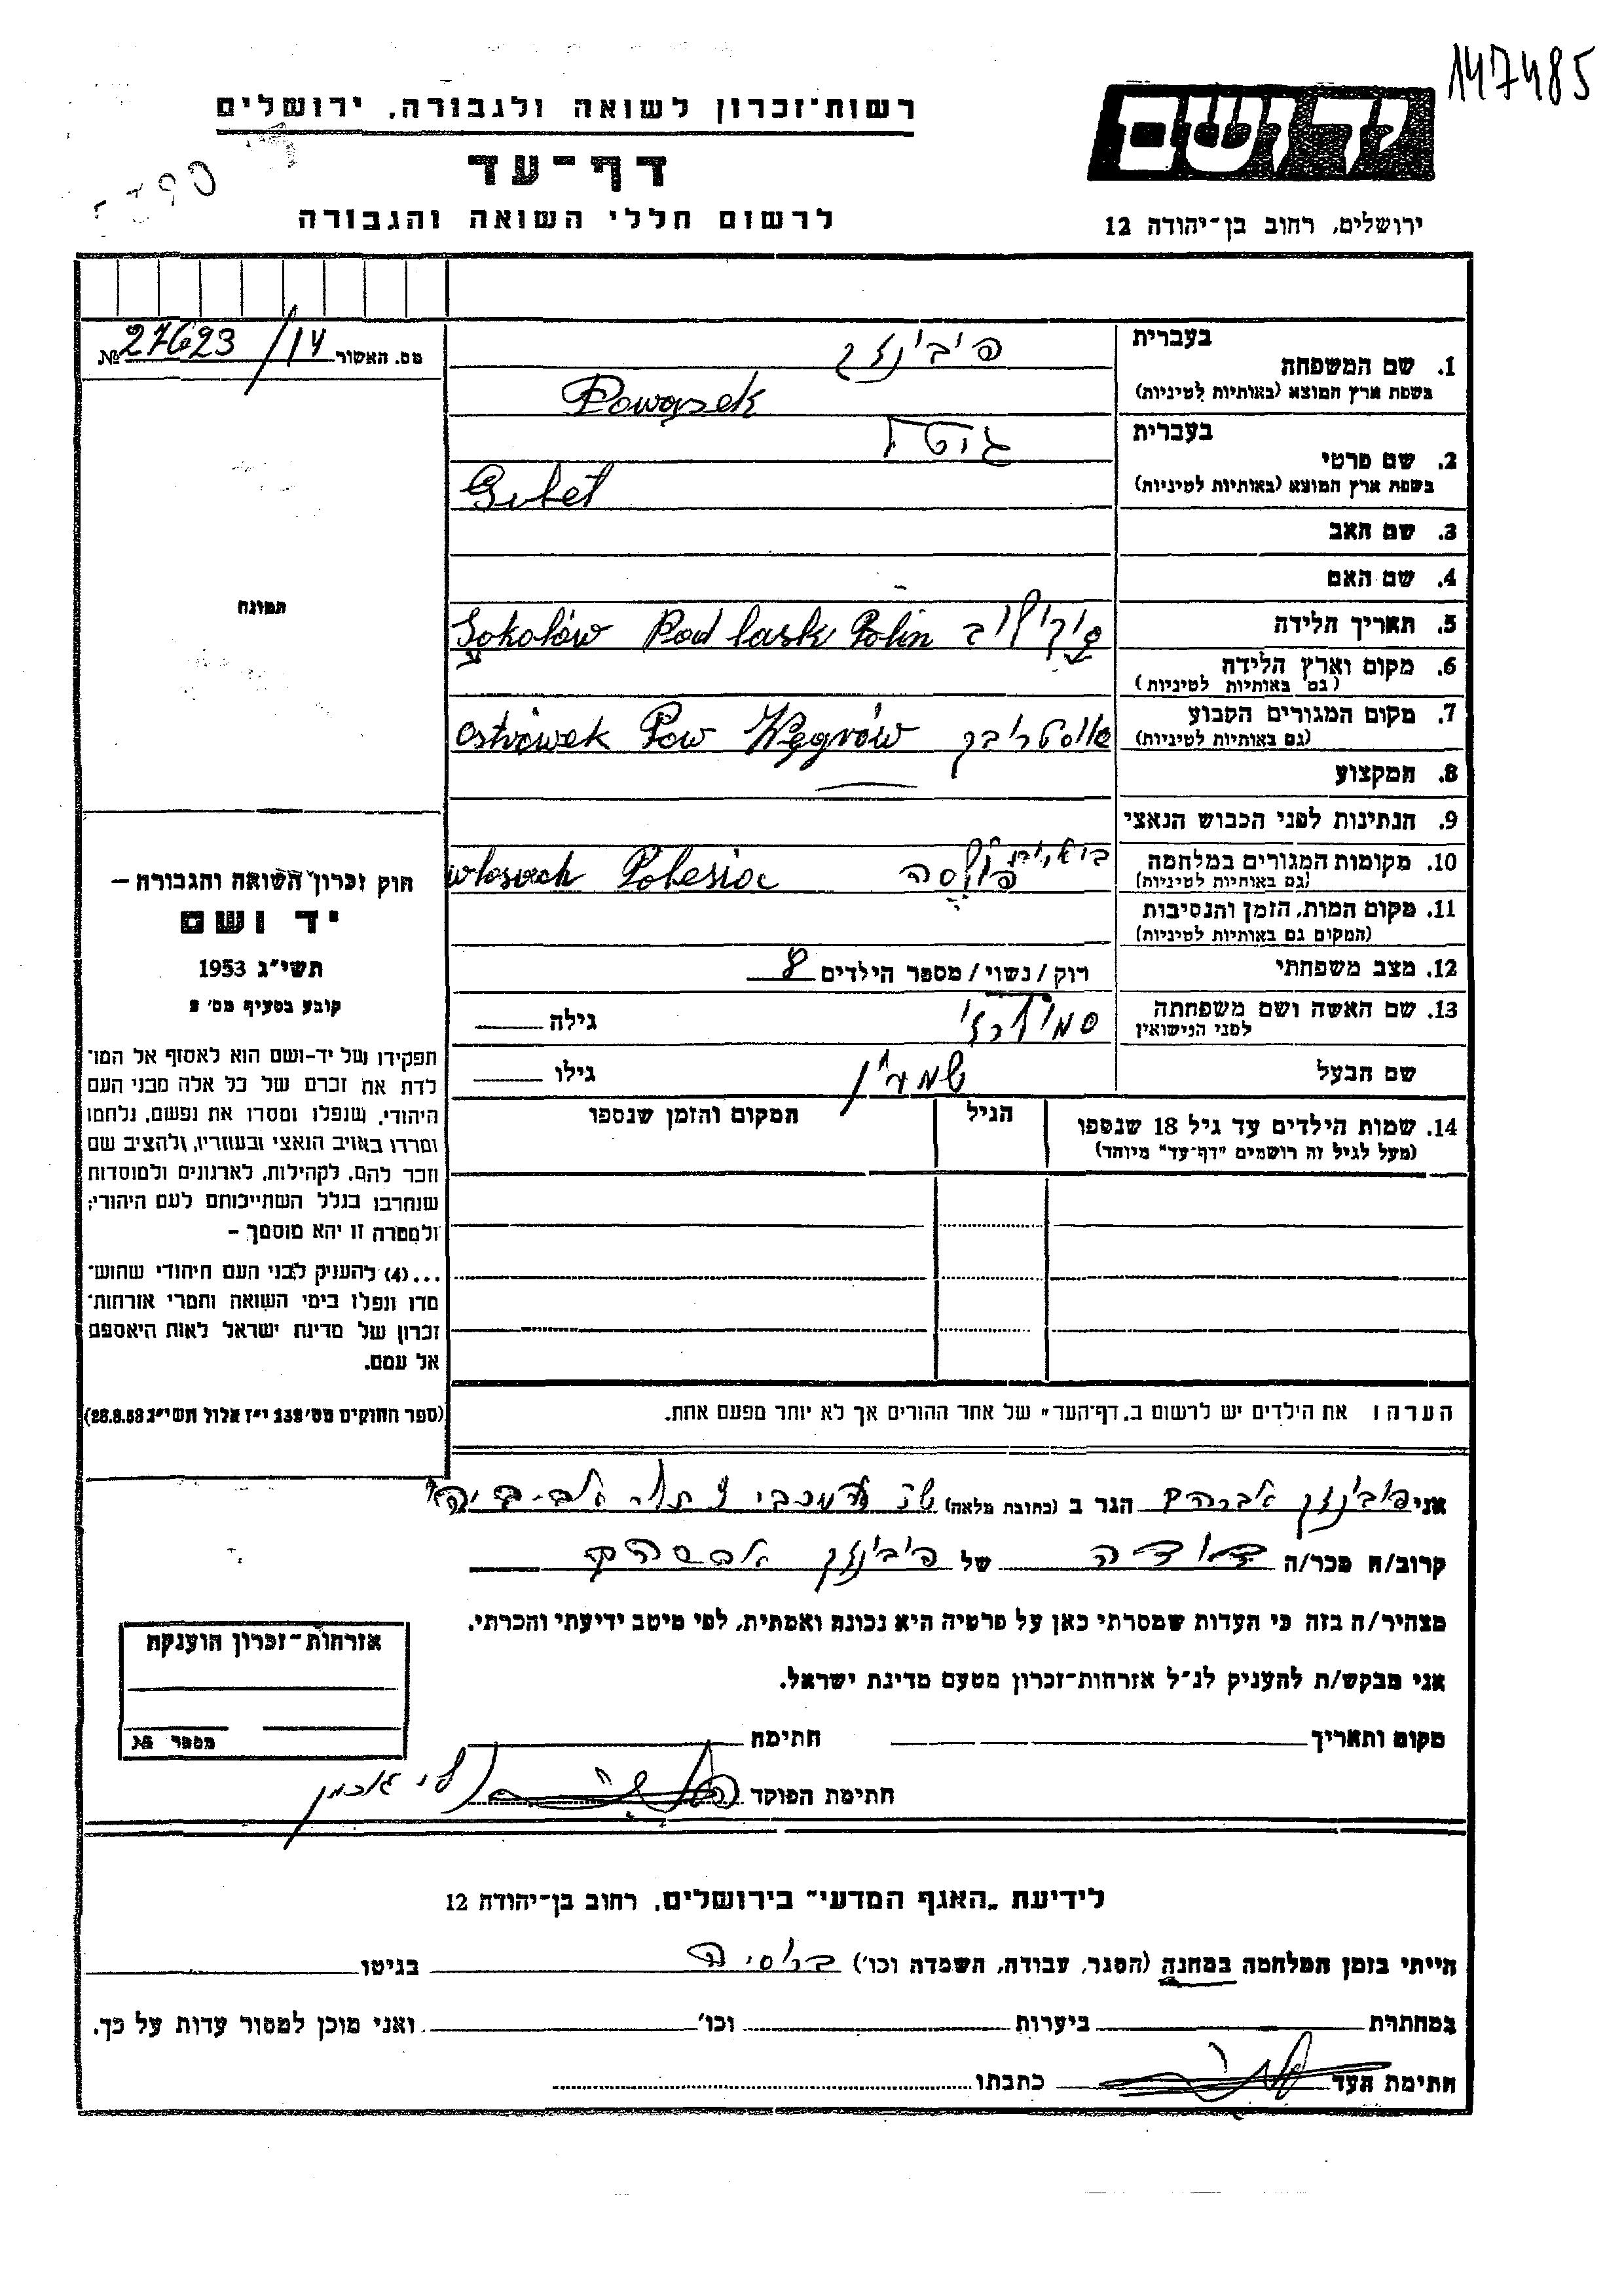 147485
רשות־זכרון לשואה ולגבורה, ירושלים
יד ושם
דף־עד
לרשום חללי השואה והגבורה
ירושלים, רחוב בן־יהודה 12
מס. האשור № 27623/14
בעברית
1. שם המשפחה
בשפת ארץ המוצא (באותיות לטיניות)
בעברית
2. שם פרטי
בשפת ארץ המוצא (באותיות לטיניות)
3. שם האב
4. שם האם
5. תאריך הלידה
Sokołów Podlask Polin
6. מקום וארץ הלידה
(גם באותיות לטיניות)
7. מקום המגורים הקבוע
(גם באותיות לטיניות)
Ostrówek Pow Węgrów
8. המקצוע
9. הנתינות לפני הכבוש הנאצי
10. מקומות המגורים במלחמה
(גם באותיות לטיניות)
11. מקום המות, הזמן והנסיבות
(המקום גם באותיות לטיניות)
12. מצב משפחתי
רוק/נשוי/מספר הילדים 8
13. שם האשה ושם משפחתה
לפני הנישואין
גילה
שם הבעל
גילו
14. שמות הילדים עד גיל 18 שנספו
(מעל לגיל זה רושמים "דף־עד" מיוחד)
הגיל
המקום והזמן שנספו
תמונה
חוק זכרון השואה והגבורה –
יד ושם
תשי"ג 1953
קובע בסעיף מס' 2
תפקידו של יד-ושם הוא לאסוף אל המו־
לדת את זכרם של כל אלה מבני העם
היהודי, שנפלו ומסרו את נפשם, נלחמו
ומרדו באויב הנאצי ובעוזריו, ולהציב שם
וזכר להם, לקהילות, לארגונים ולמוסדות
שנחרבו בגלל השתייכותם לעם היהודי;
ולמטרה זו יהא מוסמך –
...(4) להעניק לבני העם היהודי שהוש־
מדו ונפלו בימי השואה והמרי אזרחות־
זכרון של מדינת ישראל לאות היאספם
אל עמם.
(ספר החוקים מס' 132 י"ז אלול תשי"ג 28.8.53)
הערה: את הילדים יש לרשום ב"דף־העד" של אחד ההורים אך לא יותר מפעם אחת.
אני אברהם הגר ב (כתובת מלאה)
קרוב/ה מכר/ה של
מצהיר/ה בזה כי העדות שמסרתי כאן על פרטיה היא נכונה ואמתית, לפי מיטב ידיעתי והכרתי.
אני מבקש/ת להעניק לנ"ל אזרחות־זכרון מטעם מדינת ישראל.
מקום ותאריך חתימה
חתימת הפוקד
אזרחות־זכרון הוענקה
מספר №
לידיעת "האגף המדעי" בירושלים, רחוב בן־יהודה 12
הייתי בזמן המלחמה במחנה (הסגר, עבודה, השמדה וכו') ברוסיה בגיטו
במחתרת ביערות וכו' ואני מוכן למסור עדות על כך.
חתימת העד כתבתו